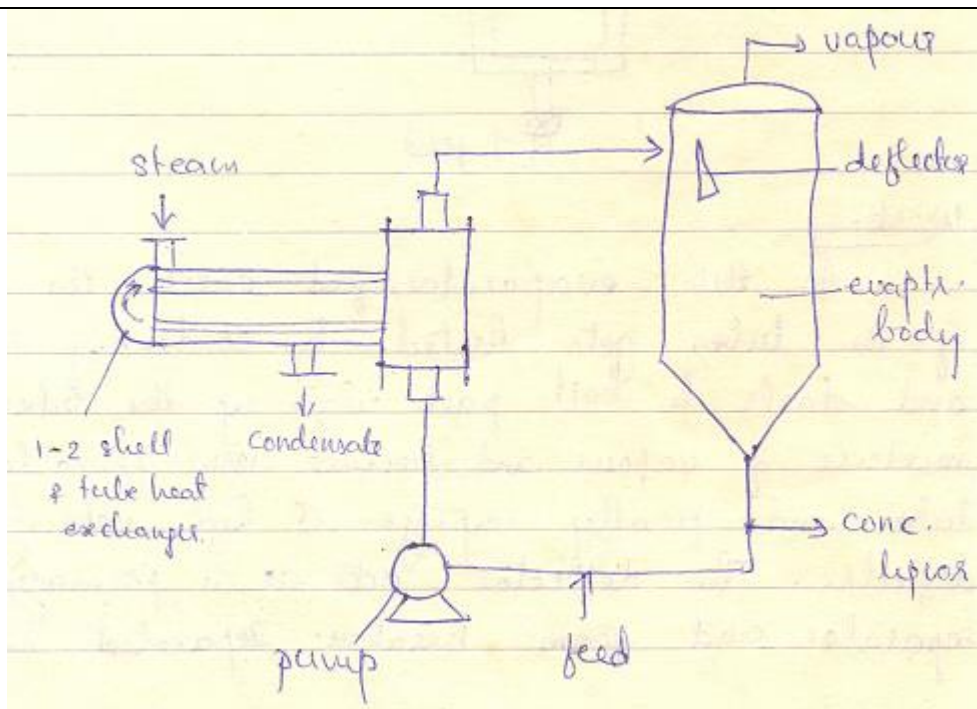 vapour
steam
deflector
evaptr.
body
1-2 shell
& tube heat
exchanger.
condensate
conc.
liquor
pump
feed